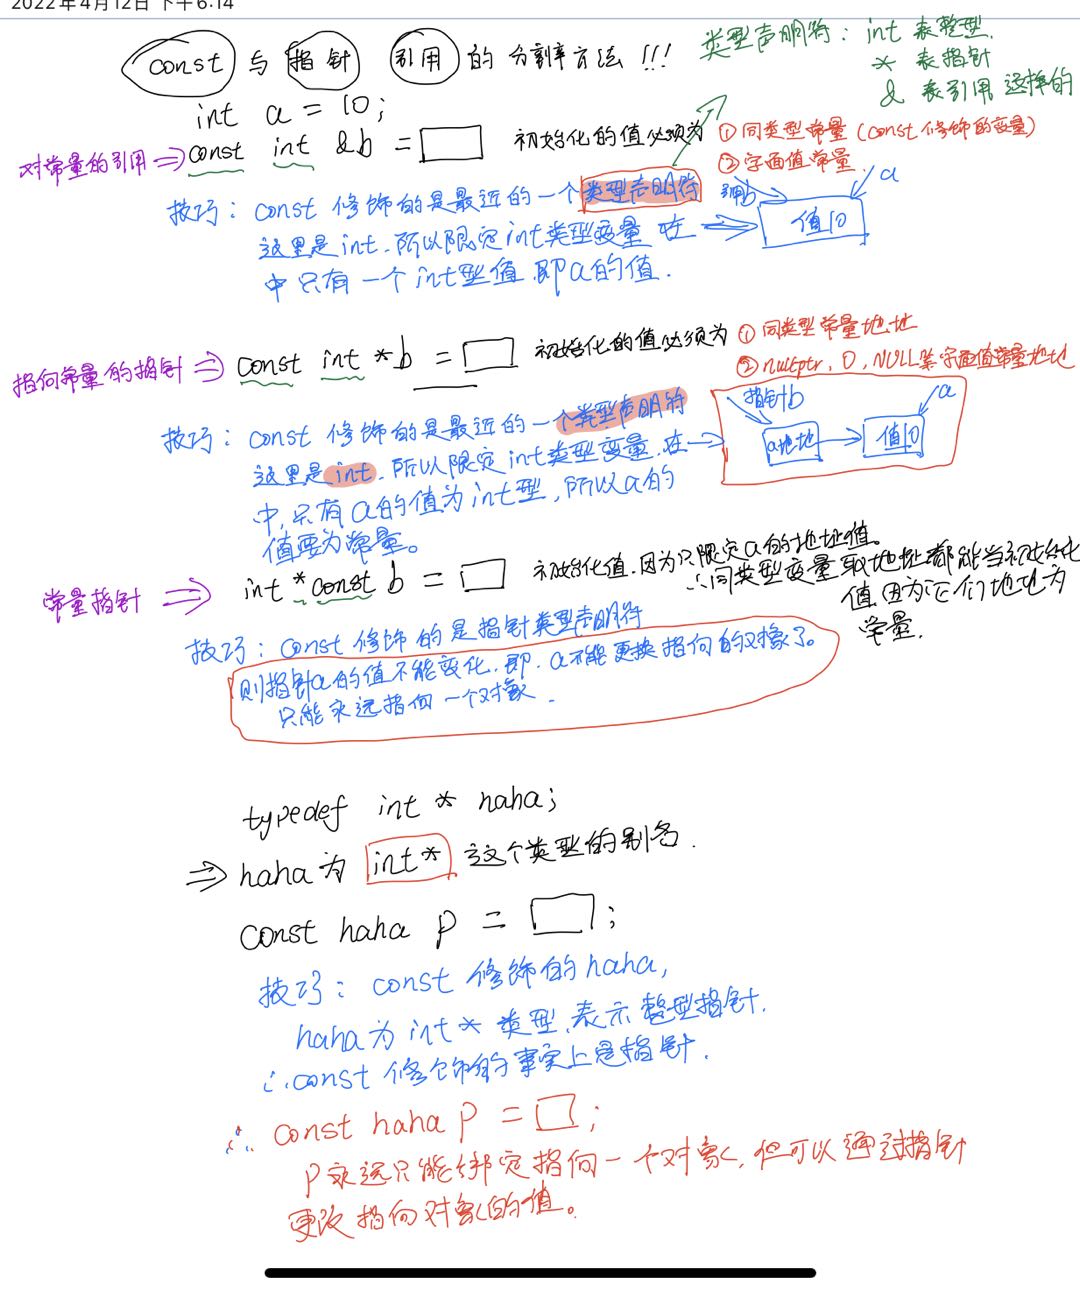 2022年4月12日 下午6:14
const 与 指针 引用 的 分割率方法 !!!
类型声明符: int 表整型.
* 表指针
& 表引用 这样的
int a = 10;
对常量的引用 ⇒ const int &b = □ 初始化的值必须为 ① 同类型常量 (const 修饰的变量)
② 字面值常量
技巧: const 修饰的是最近的一个类型声明符
这里是int. 所以限定int类型变量 在
中 只有一个int型值. 即a的值.
引用b
a
值10
指向常量的指针 ⇒ const int *b = □ 初始化的值必须为 ① 同类型常量地址
② nullptr, 0, NULL等字面值常量地址
技巧: const 修饰的是最近的一个类型声明符
这里是int. 所以限定int类型变量. 在
中, 只有a的值为int型, 所以a的
值要为常量。
指针b
a
a地址
值10
常量指针 ⇒ int *const b = □ 初始化值. 因为只限定a的地址值。
∴同类型变量取地址都能当初始化
值. 因为它们地址为
常量.
技巧: const 修饰的是指针类型声明符
则指针a的值不能变化. 即. a不能更换指向的对像了。
只能永远指向一个对象.
typedef int * haha;
⇒ haha为 int* 这个类型的别名.
const haha p = □;
技巧: const 修饰的haha,
haha为int* 类型, 表示整型指针.
∴const 修饰的事实上是指针.
∴ const haha p = □;
p永远只能绑定指向一个对象, 但可以通过指针
更改指向对象的值。